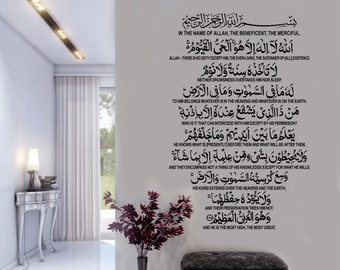 بسم الله الرحمن الرحيم
IN THE NAME OF ALLAH, THE BENEFICENT, THE MERCIFUL.
اللَّهُ لَا إِلَٰهَ إِلَّا هُوَ الْحَيُّ الْقَيُّومُ
ALLAH - THERE IS NO DEITY EXCEPT HIM, THE EVER LIVING, THE SUSTAINER OF [ALL] EXISTENCE.
لَا تَأْخُذُهُ سِنَةٌ وَلَا نَوْمٌ
NEITHER DROWSINESS OVERTAKES HIM NOR SLEEP.
لَهُ مَا فِي السَّمَٰوَٰتِ وَمَا فِي الْأَرْضِ
TO HIM BELONGS WHATEVER IS IN THE HEAVENS AND WHATEVER IS ON THE EARTH.
مَنْ ذَا الَّذِي يَشْفَعُ عِنْدَهُ إِلَّا بِإِذْنِهِ
WHO IS IT THAT CAN INTERCEDE WITH HIM EXCEPT BY HIS PERMISSION?
يَعْلَمُ مَا بَيْنَ أَيْدِيهِمْ وَمَا خَلْفَهُمْ
HE KNOWS WHAT IS [PRESENTLY] BEFORE THEM AND WHAT WILL BE AFTER THEM,
وَلَا يُحِيطُونَ بِشَيْءٍ مِنْ عِلْمِهِ إِلَّا بِمَا شَاءَ
AND THEY ENCOMPASS NOT A THING OF HIS KNOWLEDGE EXCEPT FOR WHAT HE WILLS.
وَسِعَ كُرْسِيُّهُ السَّمَٰوَٰتِ وَالْأَرْضَ
HIS KURSI EXTENDS OVER THE HEAVENS AND THE EARTH,
وَلَا يَئُودُهُ حِفْظُهُمَا
AND THEIR PRESERVATION TIRES HIM NOT.
وَهُوَ الْعَلِيُّ الْعَظِيمُ
AND HE IS THE MOST HIGH, THE MOST GREAT.